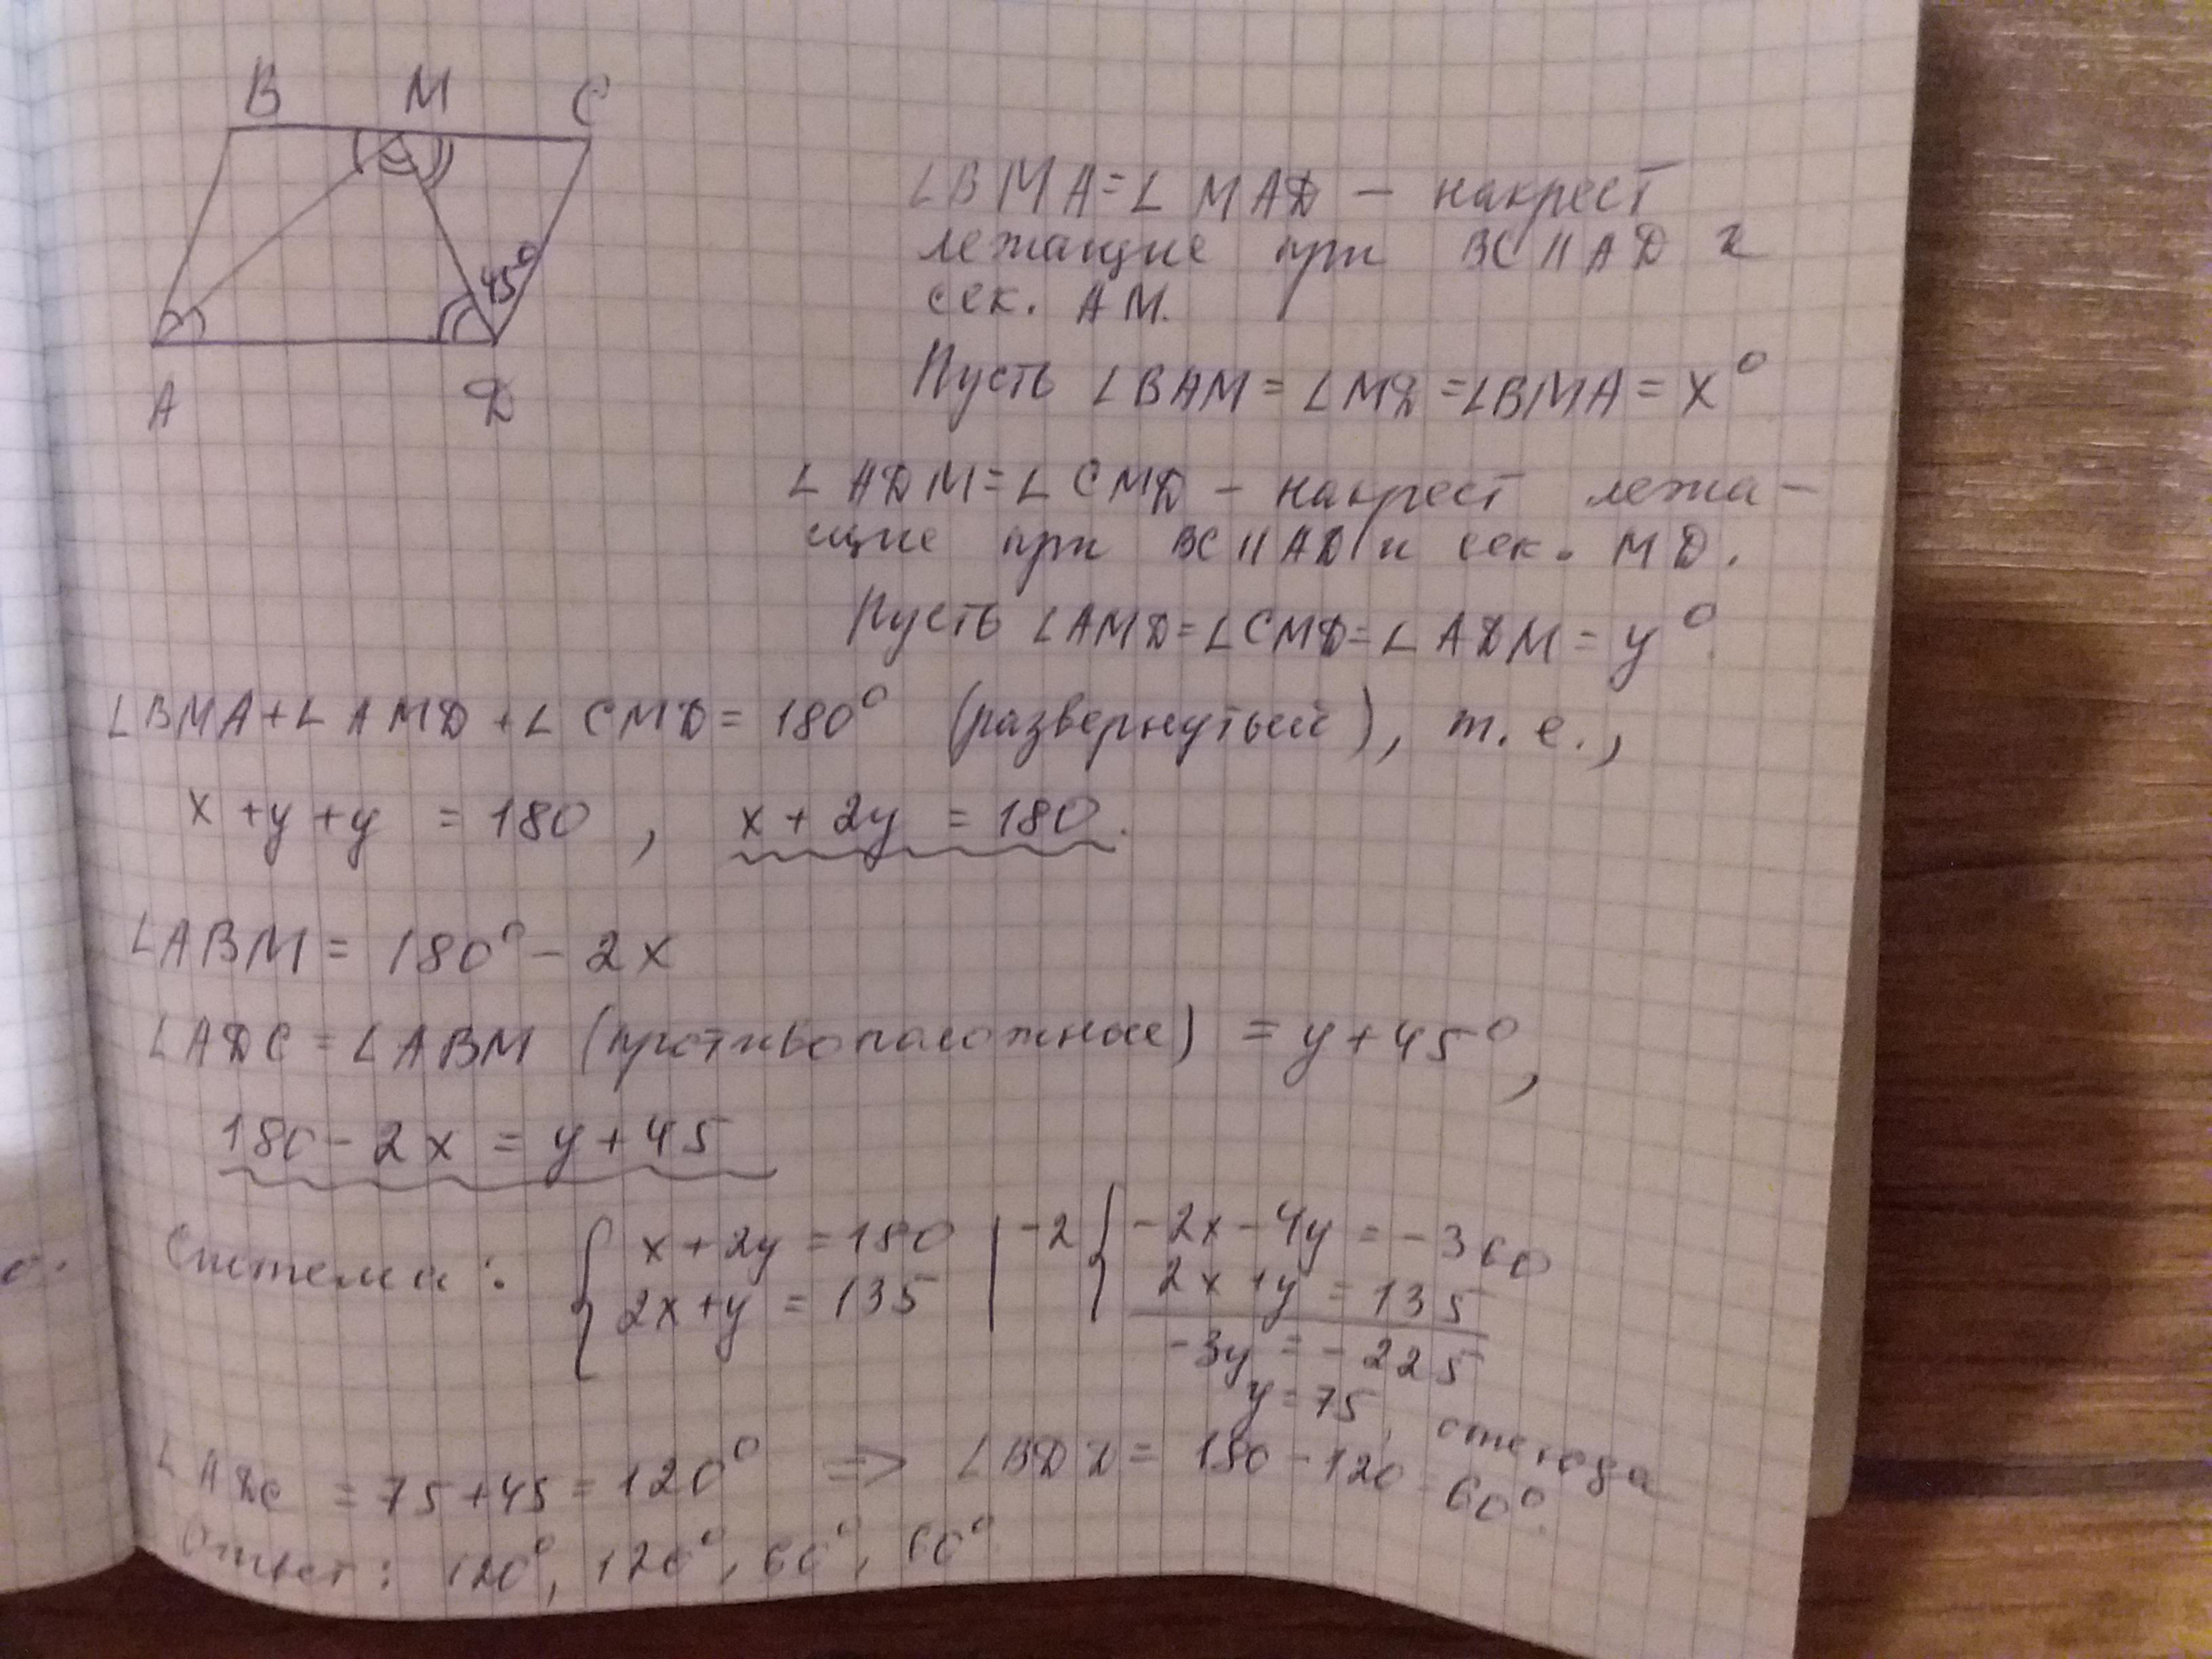 B M C
45°
A D
∠BMA = ∠MAD – накрест
лежащие при BC || AD и
сек. AM.
Пусть ∠BAM = ∠MD = ∠BMA = x°
∠ADM = ∠CMD – накрест лежа-
щие при BC || AD и сек. MD.
Пусть ∠AMD = ∠CMD = ∠ADM = y°.
∠BMA + ∠AMD + ∠CMD = 180° (развернутый), т.е.,
x + y + y = 180, x + 2y = 180.
∠ABM = 180° – 2x
∠ADC = ∠ABM (противоположные) = y + 45°,
180 – 2x = y + 45
Система: { x + 2y = 180 | –2 { –2x – 4y = –360
2x + y = 135 2x + y = 135
–3y = –225
y = 75, отсюда
∠ADC = 75 + 45 = 120° => ∠BDD = 180 – 120 = 60°.
Ответ: 120°, 120°, 60°, 60°